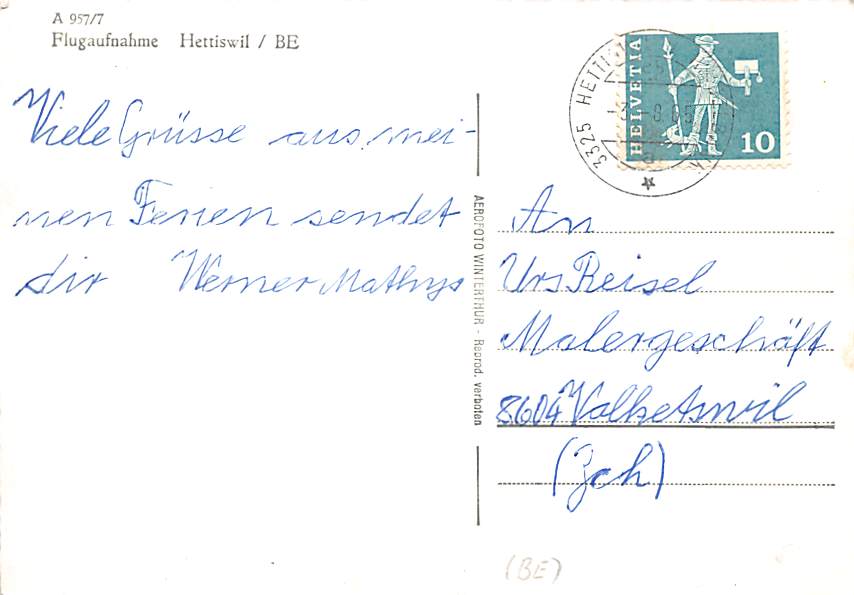 A 957/7
Flugaufnahme Hettiswil / BE
Viele Grüsse aus mei-
nen Ferien sendet
dir Werner Mathys
AEROFOTO WINTERTHUR - Reprod. verboten
3325 HETTISWIL
HELVETIA
10
An
Urs Reisel
Malergeschäft
8604 Volketswil
(Zch)
(BE)